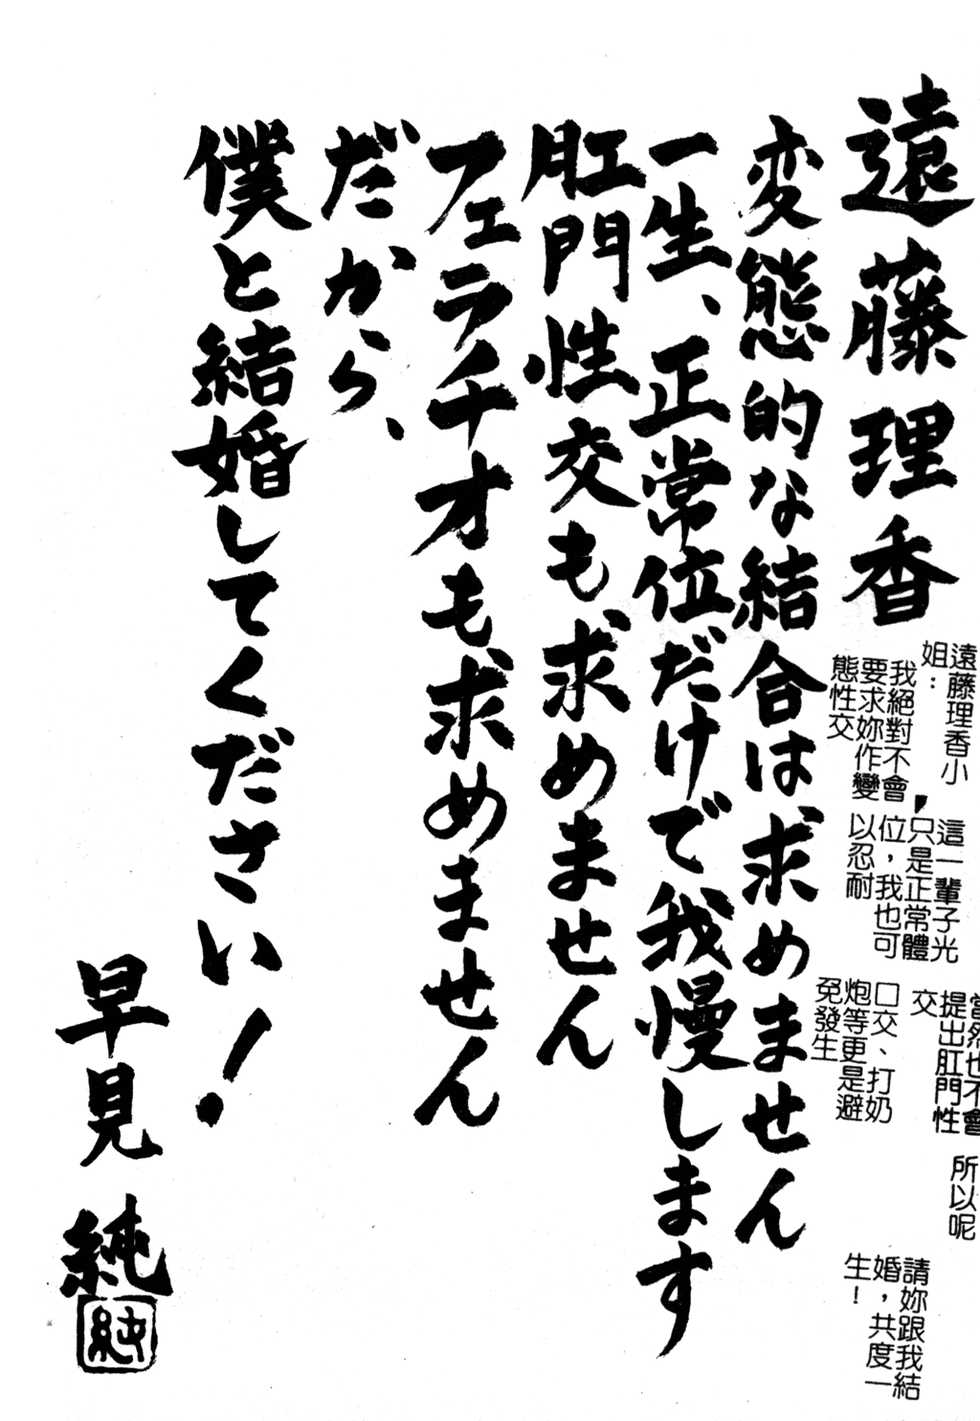 遠藤理香
変態的な結合は求めません
一生、正常位だけで我慢します
肛門性交も求めません
フェラチオも求めません
だから、
僕と結婚してください！
早見 純
純
遠藤理香小
姐：
我絕對不會
要求妳作變
態性交
，
這一輩子光
只是正常體
位，我也可
以忍耐
當然也不會
提出肛門性
交
口交、打奶
炮等更是避
免發生
所以呢
請妳跟我結
婚，共度一
生！